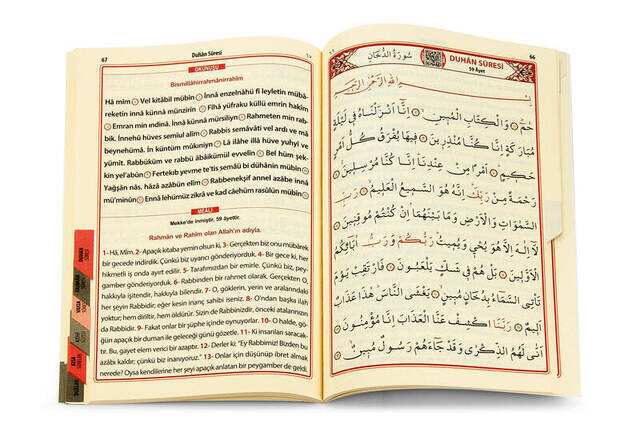 67
Duhân Sûresi
OKUNUŞU
Bismillâhirrahmânirrahîm
Hâ mîm ① Vel kitâbil mübîn ② İnnâ enzelnâhü fî leyletin mübâ-
reketin innâ künnâ münzirîn ③ Fîhâ yüfraku küllü emrin hakîm
④ Emran min ındinâ. İnnâ künnâ mürsilîn ⑤ Rahmeten min rab-
bik. İnnehû hüves semîul alîm ⑥ Rabbis semâvâti vel ardı ve mâ
beynehümâ. İn küntüm mûkıniyn ⑦ Lâ ilâhe illâ hüve yuhyî ve
yümît. Rabbüküm ve rabbü âbâikümül evvelîn ⑧ Bel hüm şek-
kin yel'abûn ⑨ Fertekıb yevme te'tis semâü bi dühânin mübîn ⑩
Yağşân nâs, hâzâ azâbün elîm ⑪ Rabbenekşif annel azâbe innâ
mü'minûn ⑫ Ennâ lehümüz zikrâ ve kad câehüm rasûlün mübîn ⑬
MEÂLİ
Mekke'de inmiştir. 59 âyettir.
Rahmân ve Rahîm olan Allah'ın adıyla.
1- Hâ, Mîm. 2- Apaçık kitaba yemin olsun ki, 3- Gerçekten biz onu mübârek
bir gecede indirdik. Çünkü biz uyarıcı gönderiyorduk. 4- Bir gece ki, her
hikmetli iş onda ayırt edilir. 5- Tarafımızdan bir emirle. Çünkü biz, pey-
gamber gönderiyorduk. 6- Rabbinden bir rahmet olarak. Gerçekten O,
hakkıyla işitendir, hakkıyla bilendir. 7- O, göklerin, yerin ve aralarındaki
her şeyin Rabbidir; eğer kesin inanç sahibi iseniz. 8- O'ndan başka ilah
yoktur; hem diriltir, hem öldürür. Sizin de Rabbinizdir, önceki atalarınızın
da Rabbidir. 9- Fakat onlar bir şüphe içinde oynuyorlar. 10- O halde, gö-
ğün apaçık bir duman ile geleceği günü gözetle. 11- Ki insanları saracak-
tır. Bu, gayet elem verici bir azaptır. 12- Derler ki: "Ey Rabbimiz! Bizden bu
azâbı kaldır; çünkü biz inanıyoruz." 13- Onlar için düşünüp ibret almak
nerede? Oysa kendilerine her şeyi apaçık anlatan bir peygamber de geldi.
66
سُورَةُ الدُّخَانِ
DUHÂN SÛRESİ
59 Âyet
بِسْمِ اللّٰهِ الرَّحْمٰنِ الرَّحِيمِ
حٰمٓ ۞ وَالْكِتَابِ الْمُبِينِ ۞ اِنَّا اَنْزَلْنَاهُ فِي لَيْلَةٍ
مُبَارَكَةٍ اِنَّا كُنَّا مُنْذِرِينَ ۞ فِيهَا يُفْرَقُ كُلُّ اَمْرٍ
حَكِيمٍ ۞ اَمْرًا مِنْ عِنْدِنَا اِنَّا كُنَّا مُرْسِلِينَ ۞
رَحْمَةً مِنْ رَبِّكَ اِنَّهُ هُوَ السَّمِيعُ الْعَلِيمُ ۞ رَبِّ
السَّمٰوَاتِ وَالْاَرْضِ وَمَا بَيْنَهُمَا اِنْ كُنْتُمْ مُوقِنِينَ ۞
لَا اِلٰهَ اِلَّا هُوَ يُحْيِي وَيُمِيتُ رَبُّكُمْ وَرَبُّ اٰبَائِكُمُ
الْاَوَّلِينَ ۞ بَلْ هُمْ فِي شَكٍّ يَلْعَبُونَ ۞ فَارْتَقِبْ يَوْمَ
تَأْتِي السَّمَاءُ بِدُخَانٍ مُبِينٍ ۞ يَغْشَى النَّاسَ هٰذَا عَذَابٌ
اَلِيمٌ ۞ رَبَّنَا اكْشِفْ عَنَّا الْعَذَابَ اِنَّا مُؤْمِنُونَ ۞
اَنّٰى لَهُمُ الذِّكْرٰى وَقَدْ جَاءَهُمْ رَسُولٌ مُبِينٌ ۞